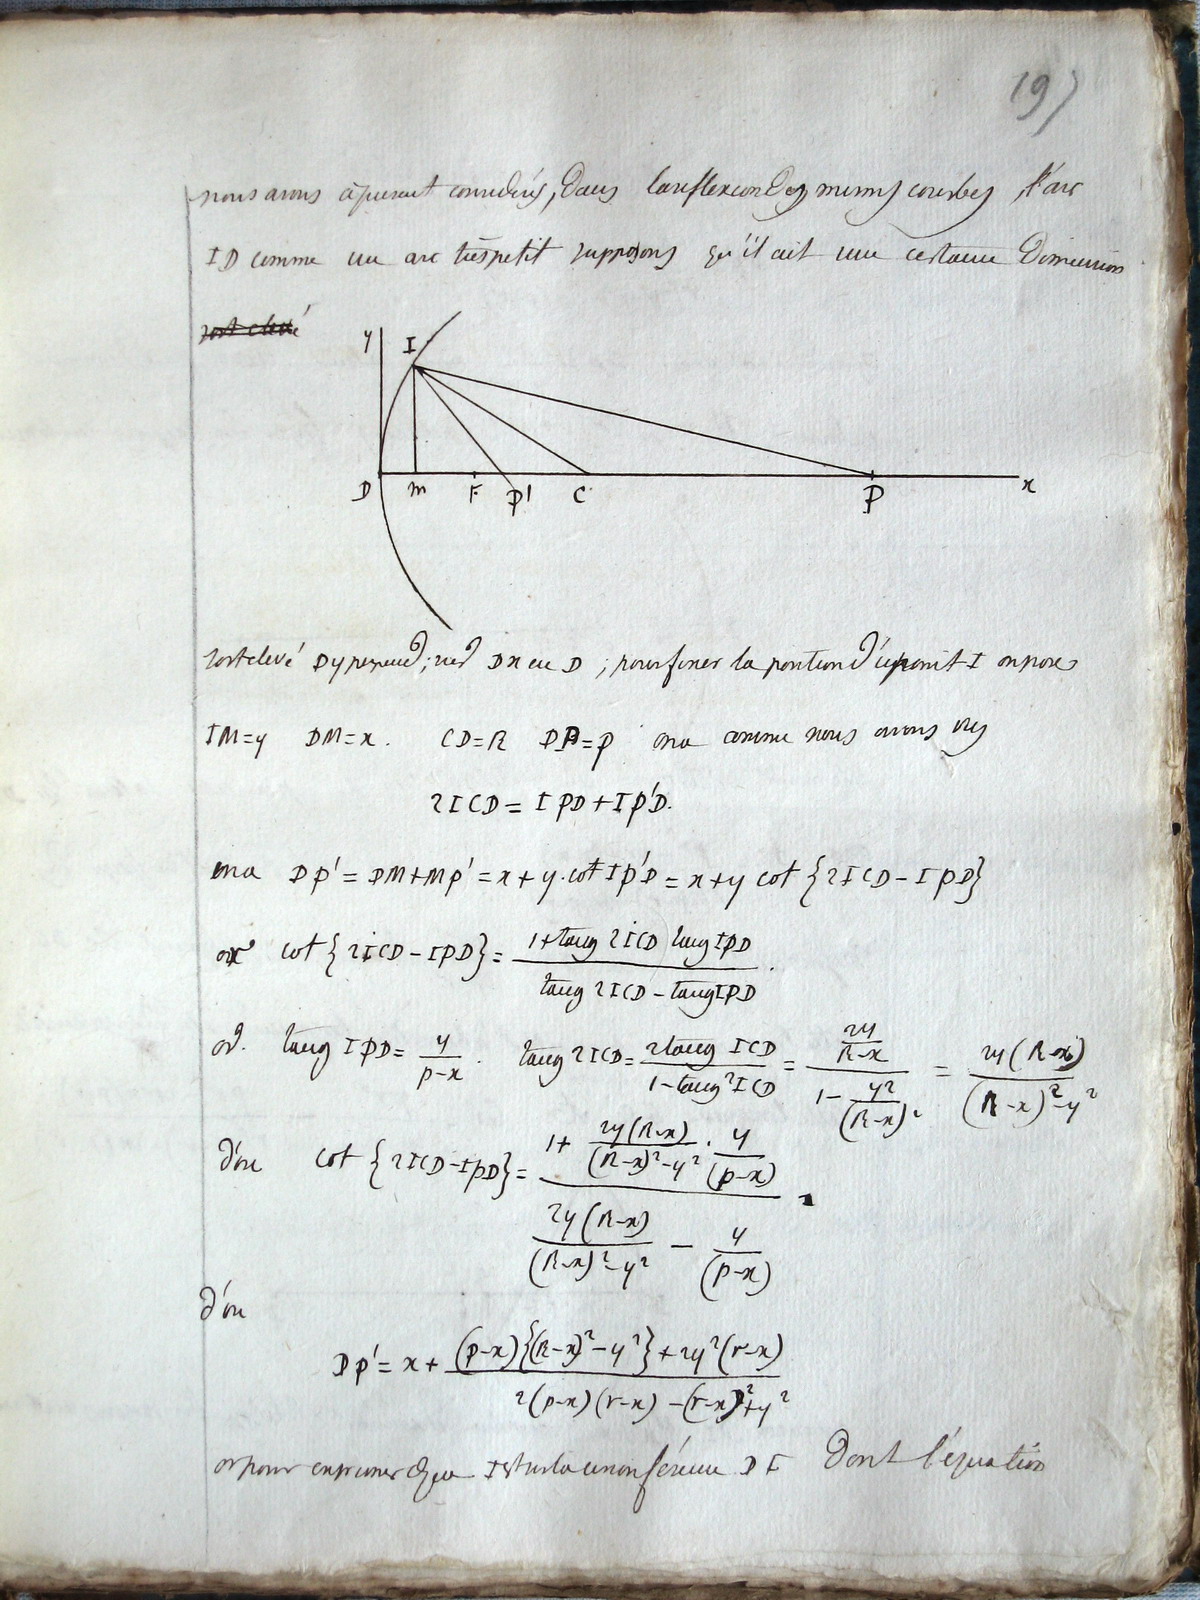 197
nous avons à présent considérés, dans la reflexion des miroirs courbes, l'arc
ID comme un arc très petit supposons qu'il ait une certaine dimension
soit elevé
y I
D M F P' C P x
soit elevé Dy perpend; sur Dx en D ; pour fixer la position du point I on pose
IM=y DM=x. CD=R DP=p on a comme nous avons vu
2ICD = IPD + IP'D.
on a Dp' = DM+Mp' = x+y.cot Ip'D = x+y cot {2ICD-IPD}
or cot {2ICD-IPD} = \frac{1+tang 2ICD tang IPD}{tang 2ICD - tang IPD}.
or. tang IPD = \frac{y}{p-x}. tang 2ICD = \frac{2tang ICD}{1-tang²ICD} = \frac{\frac{2y}{R-x}}{1-\frac{y²}{(R-x)²}} = \frac{2y(R-x)}{(R-x)²-y²}
d'ou cot {2ICD-IpD} = \frac{1+\frac{2y(R-x)}{(R-x)²-y²}.\frac{y}{(p-x)}}{\frac{2y(R-x)}{(R-x)²-y²}-\frac{y}{(p-x)}}.
d'ou
Dp' = x+\frac{(p-x){(R-x)²-y²}+2y²(r-x)}{2(p-x)(r-x)-(r-x)²+y²}
or pour exprimer que I est sur la circonférence DI dont l'équation